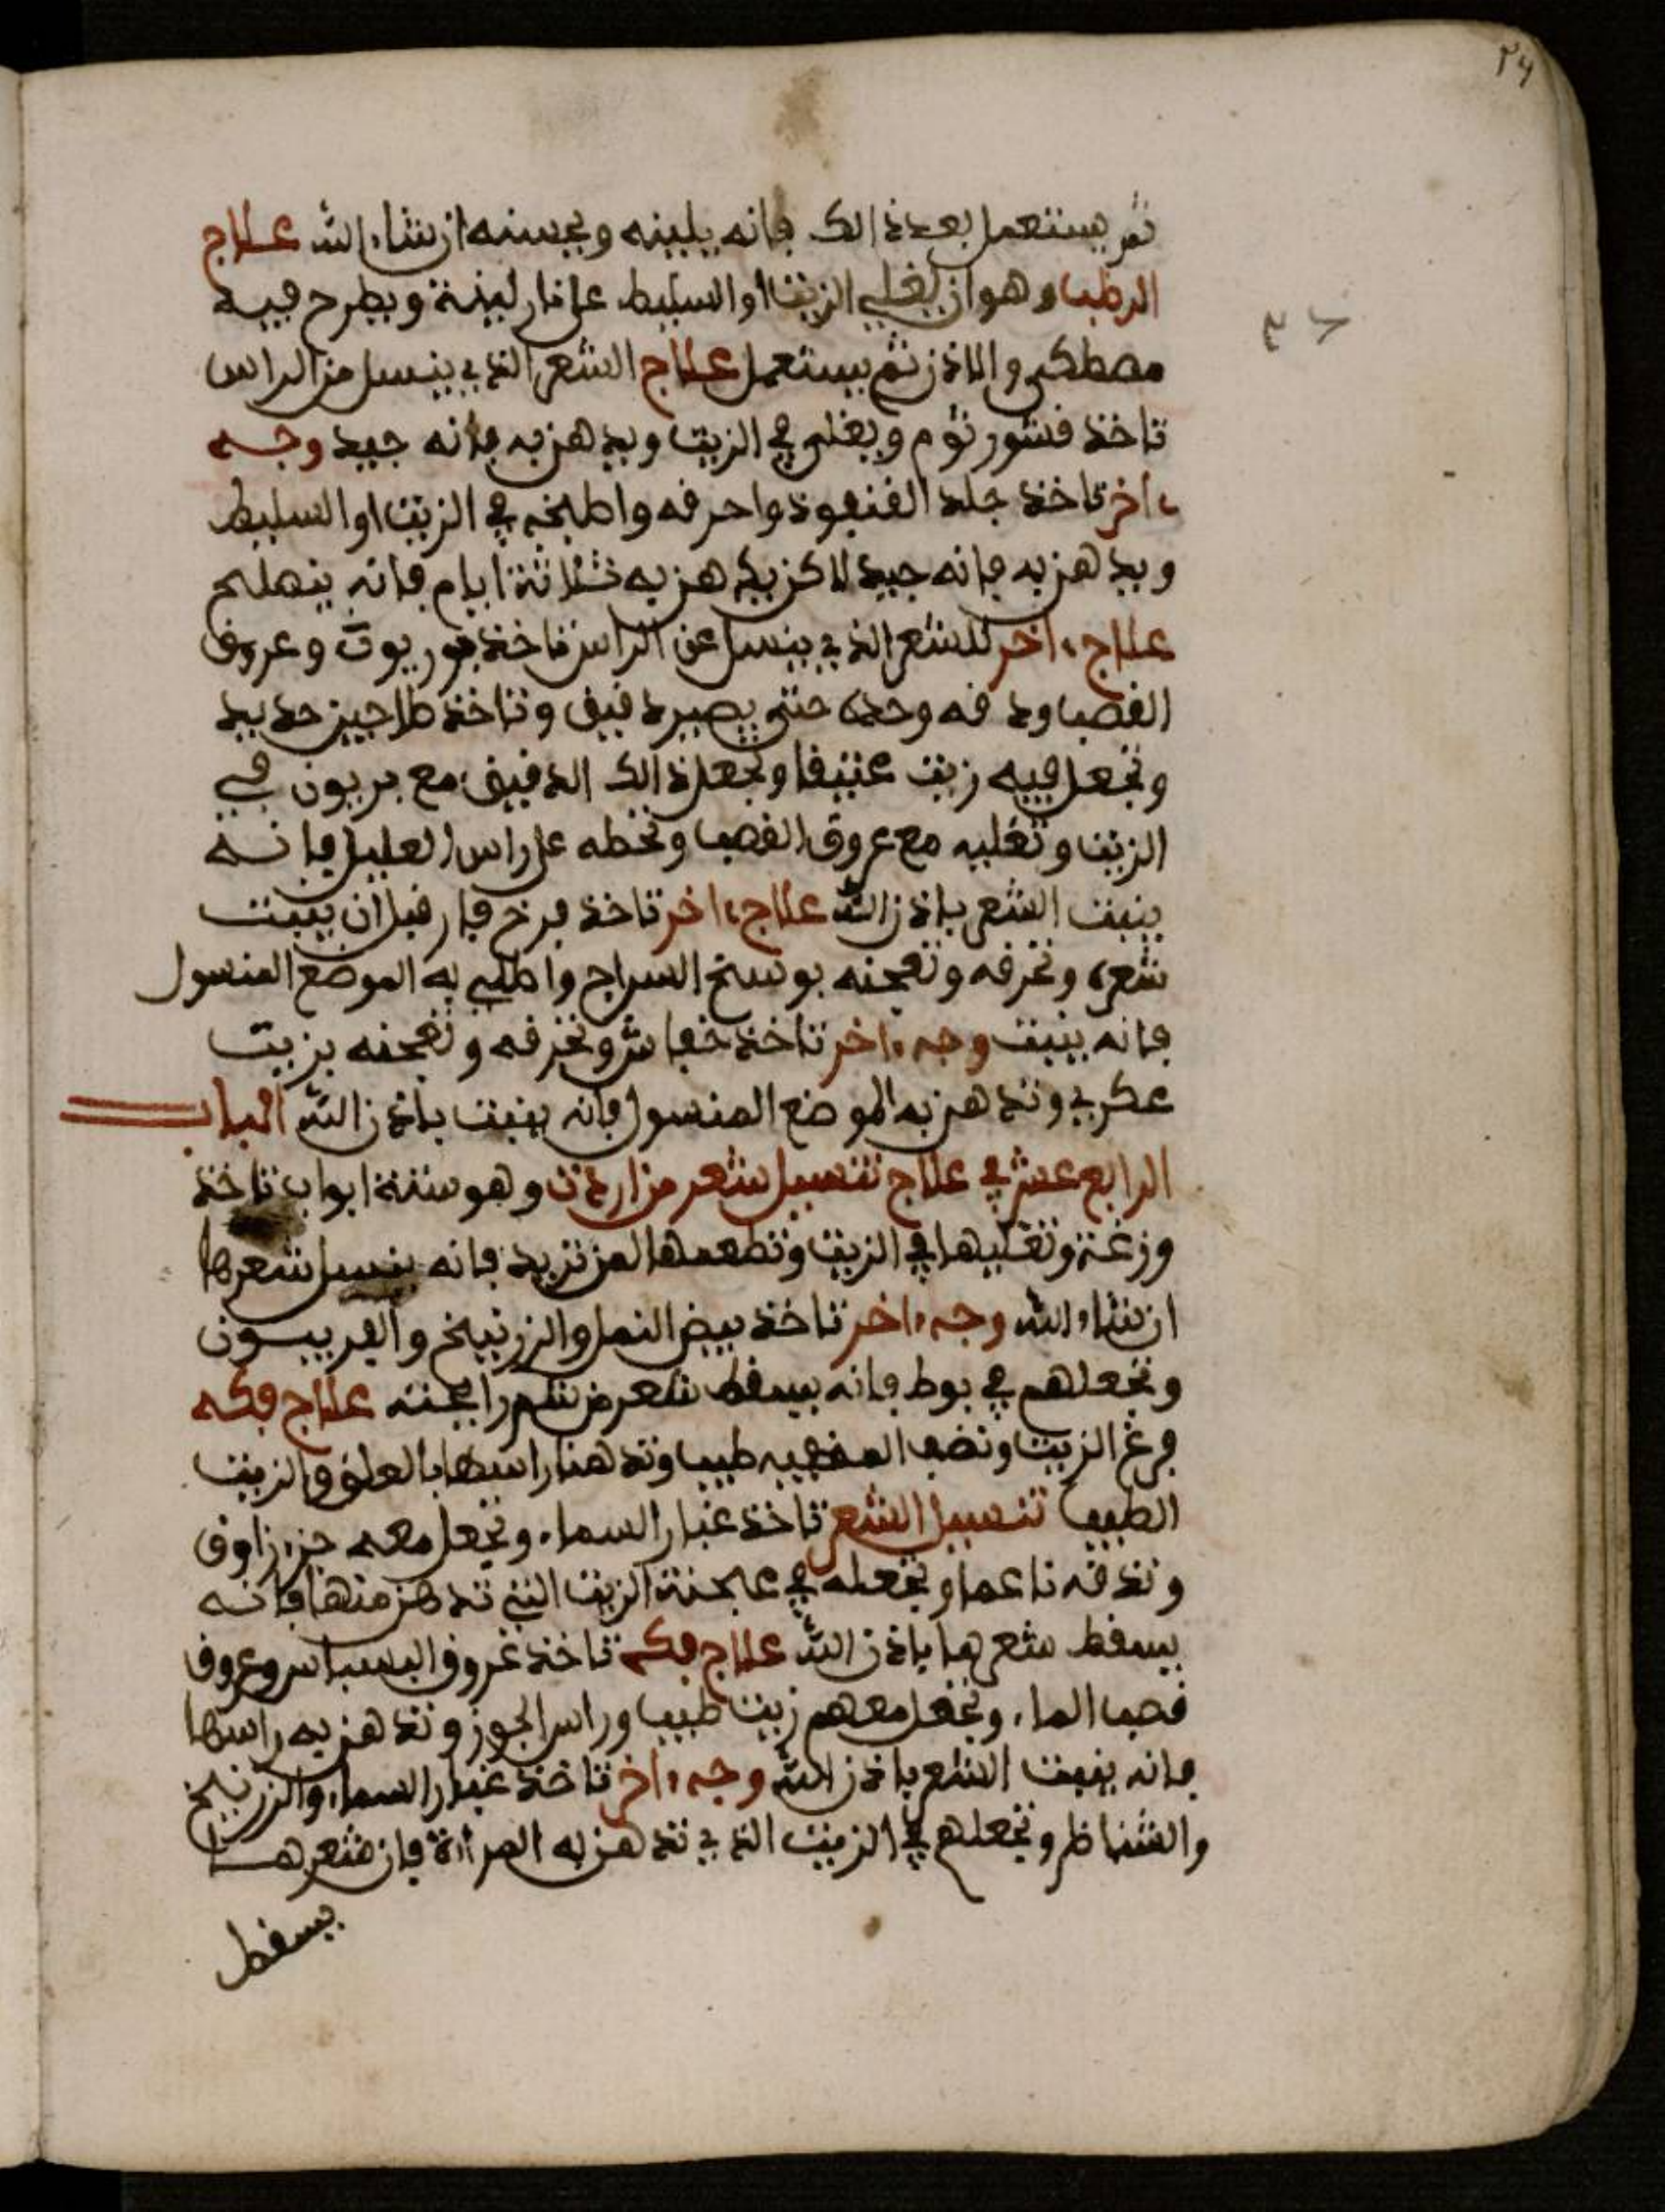 ٢٤
ثم يستعمل بعد ذالك فانه يلينه ويحسنه ان شاء الله علاج
الرطب وهو ان يغلي الزيت او السليط على نار لينة ويطرح فيه
مصطكى واللاذن ثم يستعمل علاج الشعر الذي ينسل من الراس
تاخذ قشور ثوم ويغلى في الزيت ويدهن به فانه جيد وجه
ءاخر تاخذ جلد القنفوذ واحرقه واطبخه في الزيت او السليط
ويدهن به فانه جيد لاكن يدهن به ثلاثة ايام فانه
علاج ءاخر للشعر الذي ينسل عن الراس تاخذ وعروق
القصب ودقه وحده حتى يصير دقيق وتاخذ طاجين حديد
وتجعل فيه زيت عتيقا وتجعل ذالك الدقيق مع بربيون في
الزيت وتغليه مع عروق القصب وتحطه على راس العليل فانه
ينبت الشعر باذن الله علاج ءاخر تاخذ فرخ فار قبل ان ينبت
شعره وتحرقه وتعجنه بوسخ السراج واطلي به الموضع المنسول
فانه ينبت وجه ءاخر تاخذ خفاش وتحرقه وتعجنه بزيت
عكري وتدهن به الموضع المنسول فانه ينبت باذن الله الباب
الرابع عشر في علاج تنسيل شعر من اردت وهو ستة ابواب تاخذ
وزغة وتغليها في الزيت وتطعمها لمن تريد فانه ينسل شعرها
ان شاء الله وجه ءاخر تاخذ بيض النمل والزرنيخ والفربيون
وتجعلهم في بوط فانه يسقط شعر من شم رايحته علاج فكه
فرغ الزيت وتضف طيب وتدهن راسها والزيت
الطيب تنسيل الشعر تاخذ غبار السماء وتجعل معه جزء زاوق
وتدقه ناعما وتجعله في عجنة الزيت التي تدهن منها فانه
يسقط شعرها باذن الله علاج فكه تاخذ عروق البسباس وعروق
قصب الماء وتجعل معهم زيت طيب وراس الجوز وتدهن به راسها
فانه ينبت الشعر باذن الله وجه ءاخر تاخذ غبار السماء والزرنيخ
والشناظر وتجعلهم في الزيت الذي تدهن به المراة فان شعرها
يسقط